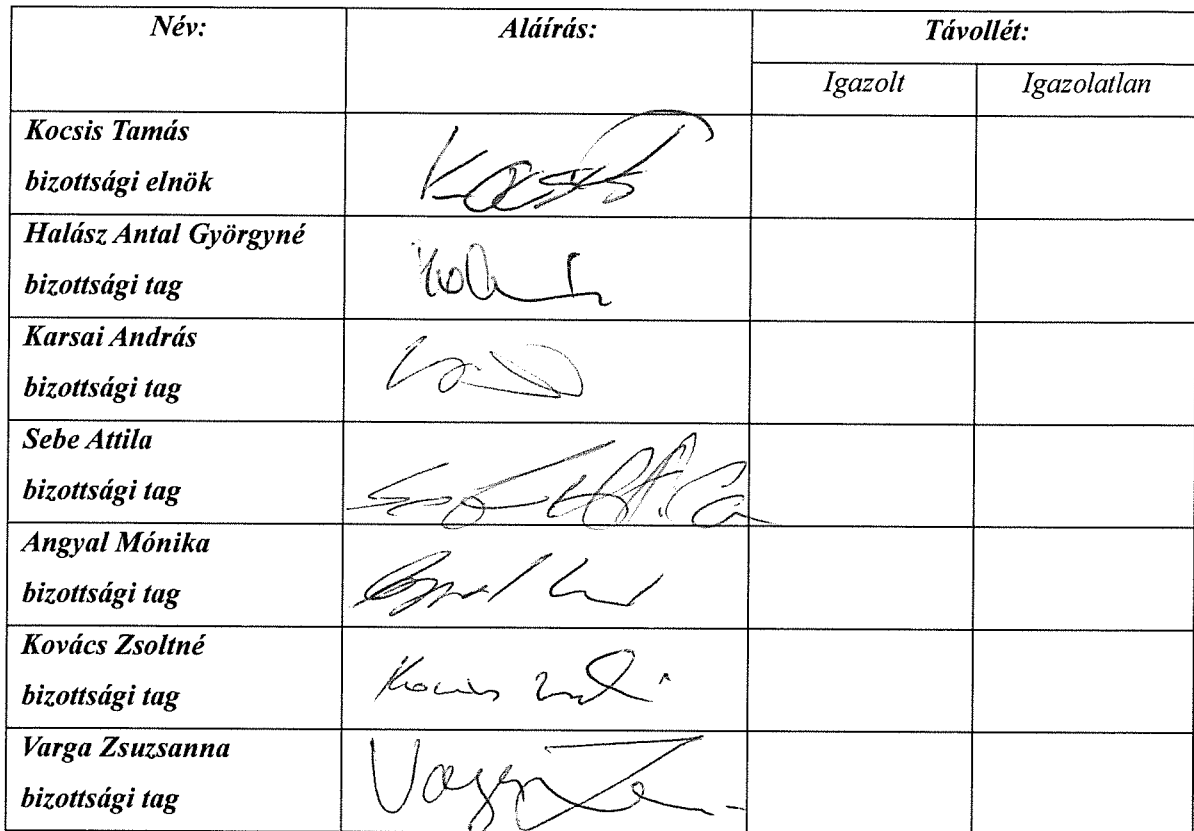 Név: Aláírás: Távollét:
Igazolt Igazolatlan
Kocsis Tamás
bizottsági elnök
Halász Antal Györgyné
bizottsági tag
Karsai András
bizottsági tag
Sebe Attila
bizottsági tag
Angyal Mónika
bizottsági tag
Kovács Zsoltné
bizottsági tag
Varga Zsuzsanna
bizottsági tag